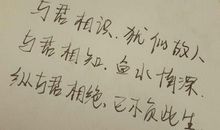 与君相识，犹似故人
与君相知，鱼水情深
纵与君相绝，已不负此生